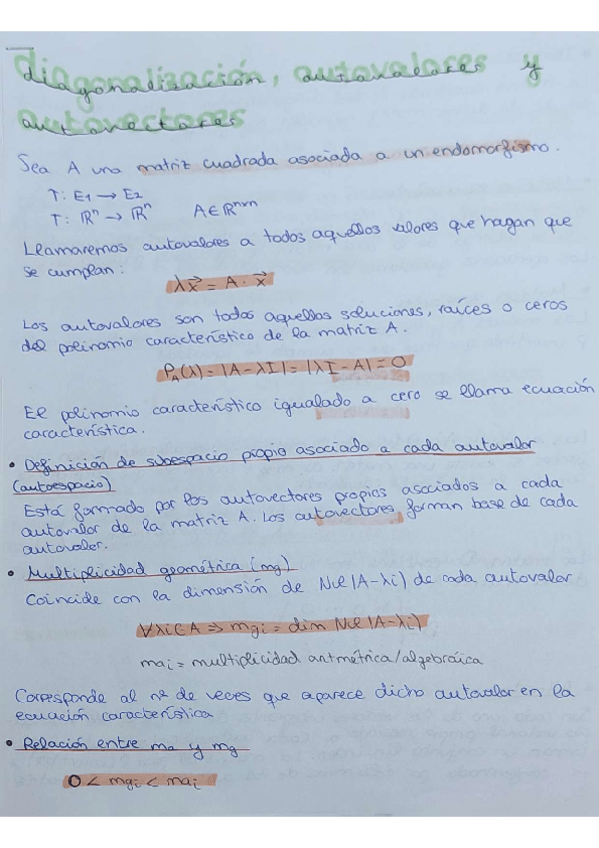 diagonalización, autovalores y
autovectores
Sea A una matriz cuadrada asociada a un endomorfismo.
T: E1 → E2
T: ℝⁿ → ℝⁿ A∈ℝⁿˣⁿ
Llamaremos autovalores a todos aquellos valores que hagan que
se cumplan:
λx⃗ = A · x⃗
Los autovalores son todas aquellas soluciones, raíces o ceros
del polinomio característico de la matriz A.
P_A(λ) = |A - λI| = |λI - A| = 0
El polinomio característico igualado a cero se llama ecuación
característica.
• Definición de subespacio propio asociado a cada autovalor
(autoespacio)
Está formado por los autovectores propios asociados a cada
autovalor de la matriz A. Los autovectores forman base de cada
autovalor.
• Multiplicidad geométrica (mg)
Coincide con la dimensión de Nul |A-λi) de cada autovalor
∀λi ∈ A ⇒ mgi = dim Nul |A-λi)
mai = multiplicidad aritmétrica/algebráica
Corresponde al nº de veces que aparece dicho autovalor en la
ecuación característica
• Relación entre ma y mg
0 < mgi < mai